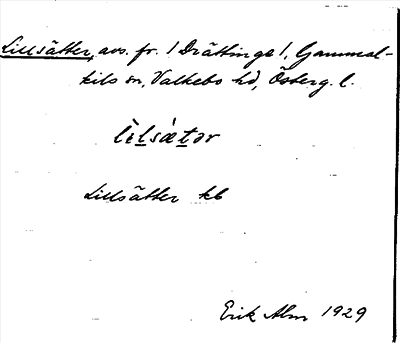 Lillsätter, avs. fr. / Drättinge /, Gammal-
kils sn, Valkebo hd, Österg. l.
lìlsǽtər
Lillsätter kb
Erik Alm 1929